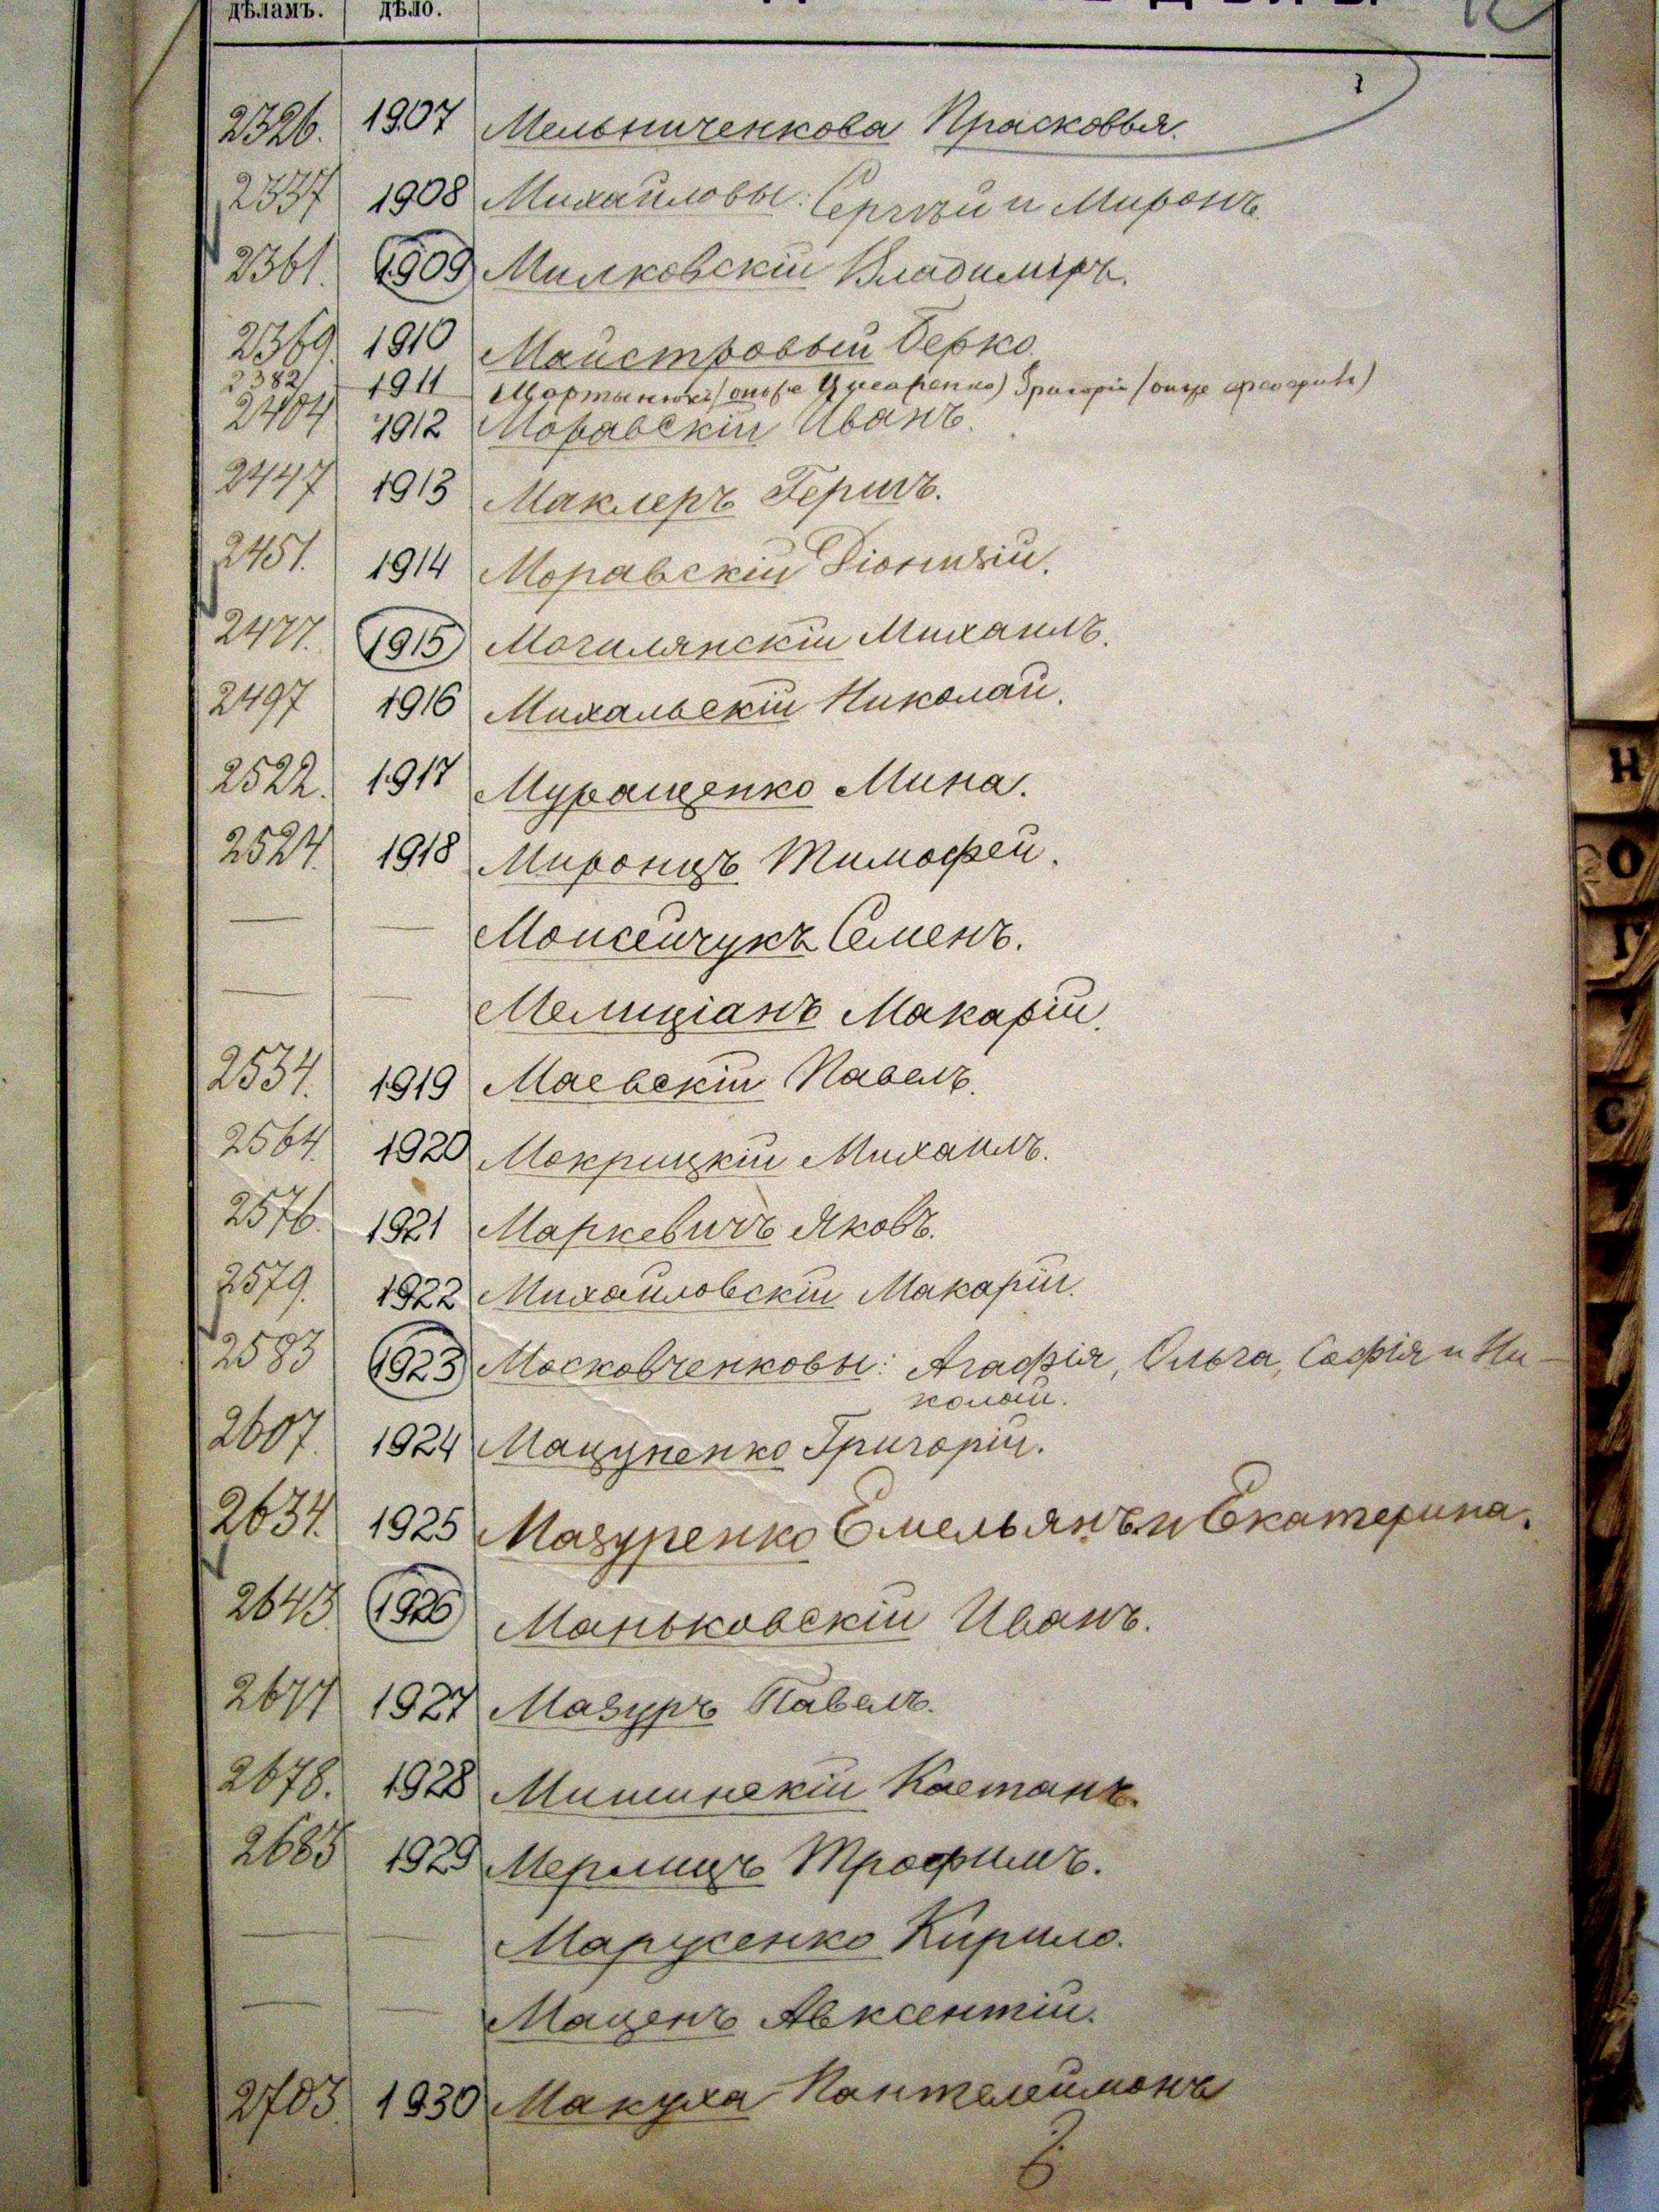 дѣламъ. дѣло.
2326. 1907 Мельниченкова Прасковья.
2337 1908 Михайловы: Сергѣй и Миронъ.
2361. 1909 Милковскій Владиміръ.
2369. 1910 Майстровый Берко.
2382 1911 Григорій
2404 1912 Моравскій Иванъ.
2447 1913 Маклеръ Гершъ.
2451. 1914 Моравскій Діонизій.
2477. 1915 Могилянскій Михаилъ.
2497 1916 Михальскій Николай.
2522. 1917 Муращенко Мина.
2524. 1918 Миронцъ Тимофей.
— — Моисейчукъ Семенъ.
— — Мелиціанъ Макарій.
2534. 1919 Маевскій Павелъ.
2564. 1920 Мокрицкій Михаилъ.
2576. 1921 Маркевичъ Яковъ.
2579. 1922 Михайловскій Макарій.
2583 1923 Московченковы: Агафія, Ольга, Софія и Ни-
колай.
2607. 1924 Мацуненко Григорій.
2634. 1925 Мазуренко Емельянъ и Екатерина.
2643. 1926 Маньковскій Иванъ.
2677 1927 Мазуръ Павелъ.
2678. 1928 Мишинскій Каетанъ.
2685 1929 Мерлицъ Трофимъ.
— — Марусенко Кирило.
— — Маценъ Авксентій.
2703. 1930 Макуха Пантелеймонъ
Н
О
П
С